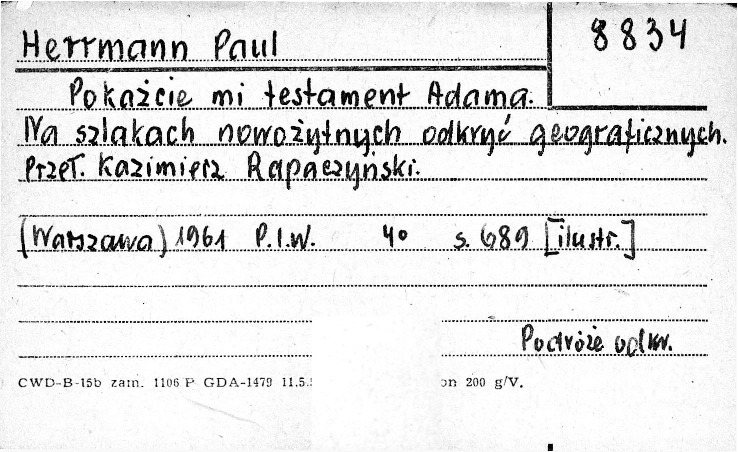 Herrmann Paul 8834
Pokażcie mi testament Adama.
Na szlakach nowożytnych odkryć geograficznych.
Przeł. Kazimierz Rapaczyński.
(Warszawa) 1961 P.I.W. 4° s. 689 [ilustr.]
Podróże odkr.
CWD-B-15b zam. 1106 P GDA-1479 11.5. on 200 g/V.